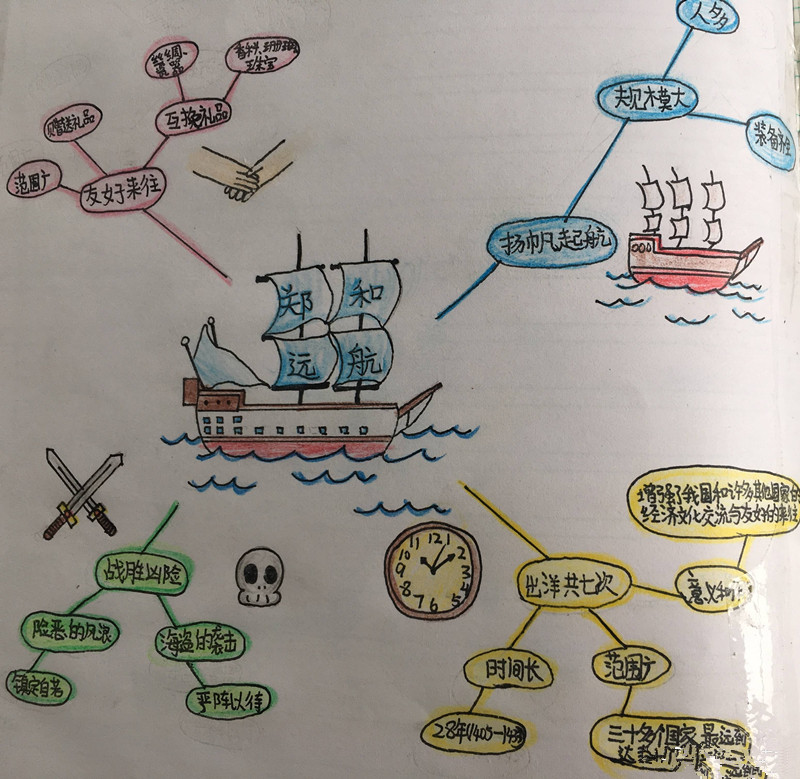 人多
丝绸、
瓷器
香料、珊瑚
珠宝
规模大
互换礼品
赠送礼品
装备齐全
范围广
友好来往
扬帆起航
郑和
远航
增强了我国和许多其他国家的
经济文化交流与友好的来往
12 1 2 3 4 5 6 7 8 9 10 11
战胜凶险
出洋共七次
意义
险恶的风浪
海盗的袭击
时间长
范围广
镇定自若
严阵以待
28年(1405-1433)
三十多个国家 最远
达